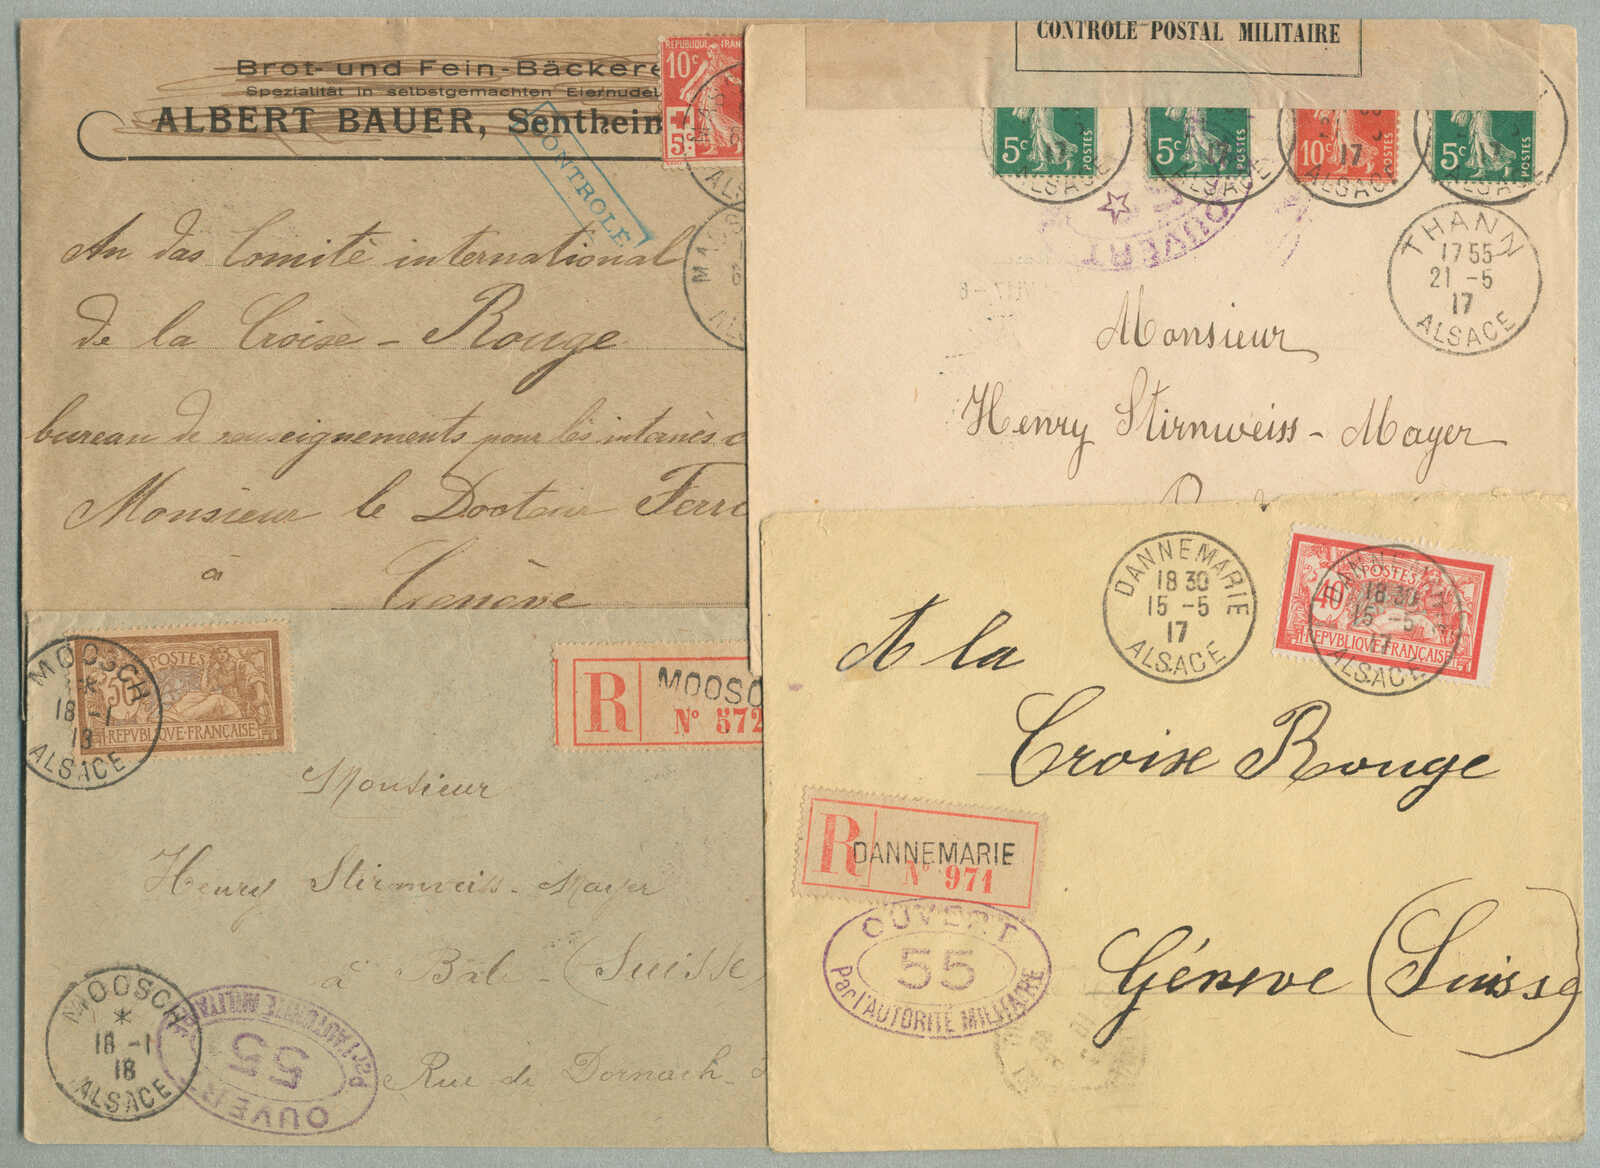 Brot- und Fein-Bäckere
Spezialität in selbstgemachten Eiernudel
ALBERT BAUER, Sentheim
CONTROLE
REPUBLIQUE FRAN
10c
5c
ALS
An das Comité international
de la Croise-Rouge
bureau de renseignements pour les internés
Monsieur le Docteur Ferr
à
Genève
CONTROLE POSTAL MILITAIRE
5c
POSTES
5c
POSTES
10c
POSTES
5c
POSTES
17
ALSACE
ALSACE
17
ALSACE
ALSACE
OUVERT
THANN
17 55
21 -5
17
ALSACE
Monsieur
Henry Stirnweiss-Mayer
MOOSCH
*
18 -1
18
ALSACE
POSTES
50
REPVBLIQVE·FRANÇAISE
R
MOOSC
N° 572
Monsieur
Henry Stirnweiss-Mayer
à Bâle (Suisse)
Rue de Dornach
MOOSCH
*
18 -1
18
ALSACE
OUVERT
55
par l'AUTORITÉ MILITAIRE
DANNEMARIE
18 30
15 -5
17
ALSACE
POSTES
40
REPVBLIQVE·FRANÇAISE
DANNEMARIE
18 30
15 -5
17
ALSACE
A la
Croise Rouge
Génève (Suisse)
R
DANNEMARIE
N° 971
OUVERT
55
Par l'AUTORITÉ MILITAIRE